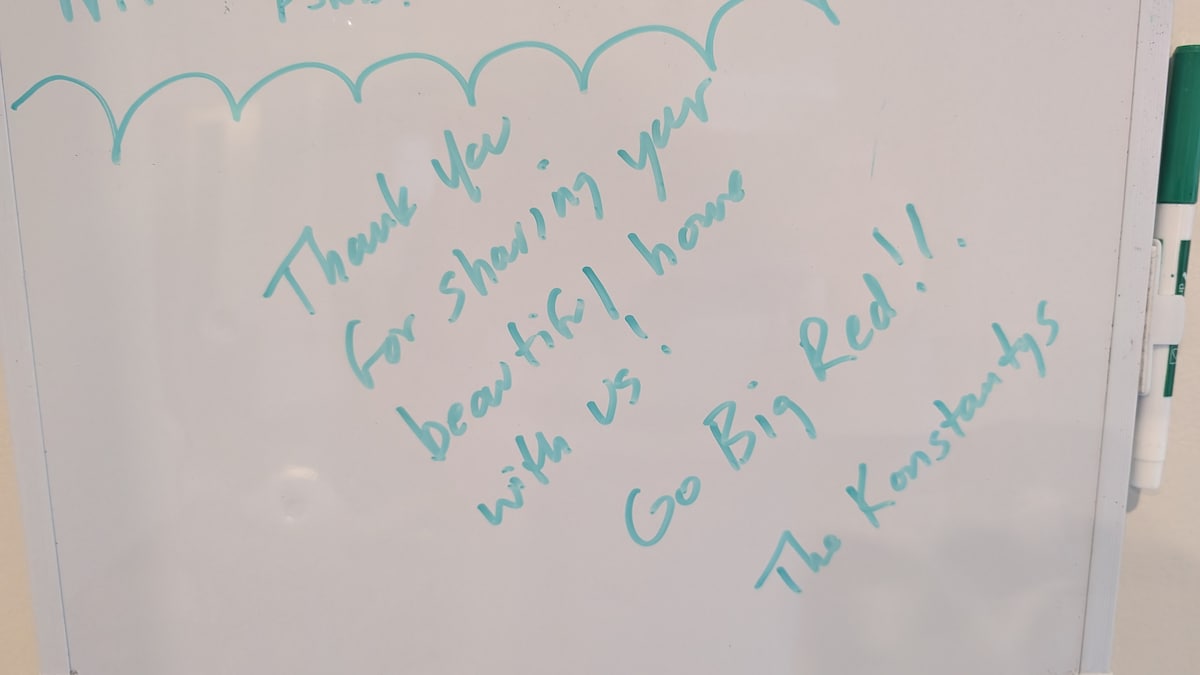 Thank you
for sharing your
beautiful home
with us!
Go Big Red!!
The Konstantys